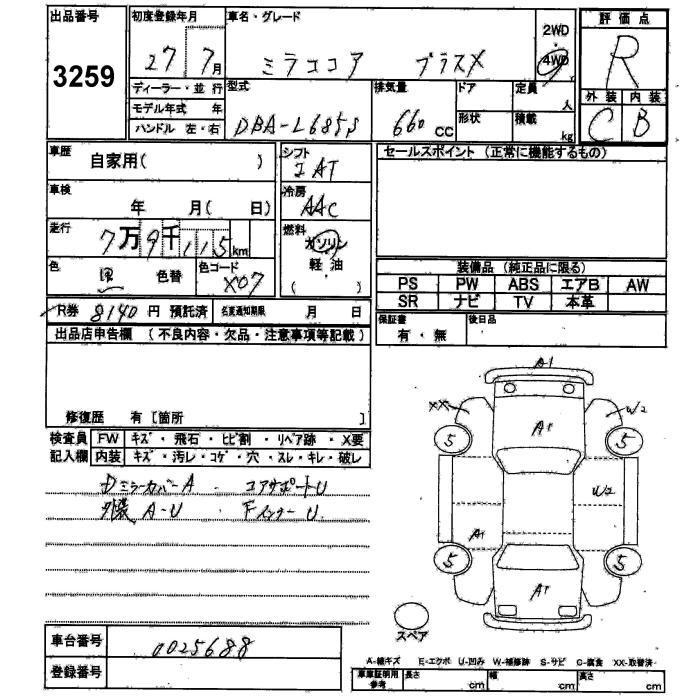 出品番号 3259
初度登録年月 27 7月
車名・グレード ミラココア プラスX
2WD・4WD
評価点 R
外装 内装
C B
ディーラー・並行
モデル年式 年
ハンドル 左・右
型式 DBA-L685S
排気量 660 CC
ドア 形状
定員 人
積載 kg
車歴 自家用( )
車検 年 月( 日)
走行 7万9千115km
色 黒 色替 色コード X07
シフト IAT
冷房 AAC
燃料 ガソリン
軽油
( )
セールスポイント (正常に機能するもの)
装備品 (純正品に限る)
PS PW ABS エアB AW
SR ナビ TV 本革
保証書 有・無
後日品
R券 8140 円 預託済
名変通知期限 月 日
出品店申告欄 (不良内容・欠品・注意事項等記載)
修復歴 有 [箇所 ]
検査員 FW キズ・飛石・ヒビ割・リペア跡・X要
記入欄 内装 キズ・汚レ・コゲ・穴・スレ・キレ・破レ
DミラーカバーA コアサポートU
外装 A-U FインナーU
A1
XX W2
5 A1 5
W2
A1
5 A1 5
スペア
車台番号 0025688
登録番号
A-線キズ E-エクボ U-凹み W-補修跡 S-サビ C-腐食 XX-取替済
車庫証明用参考 長さ cm 幅 cm 高さ cm